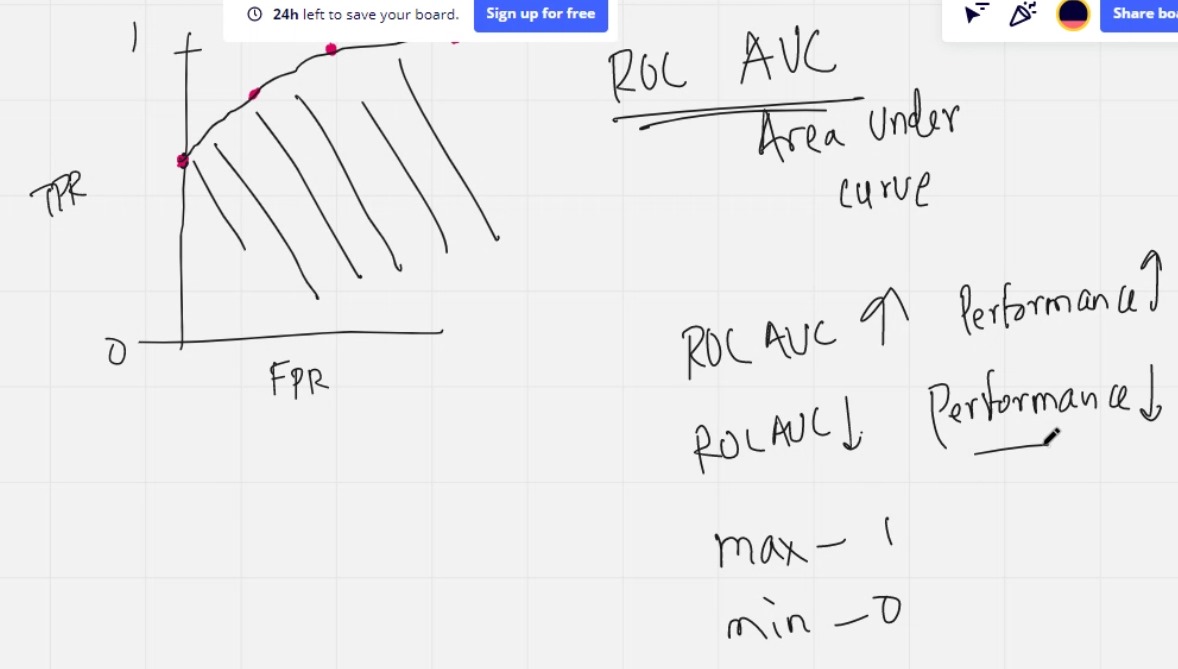 24h left to save your board. Sign up for free
Share boa
1
TPR
0
FPR
ROC AUC
Area Under
curve
ROC AUC ↑ Performance ↑
ROC AUC ↓ Performance ↓
max - 1
min - 0